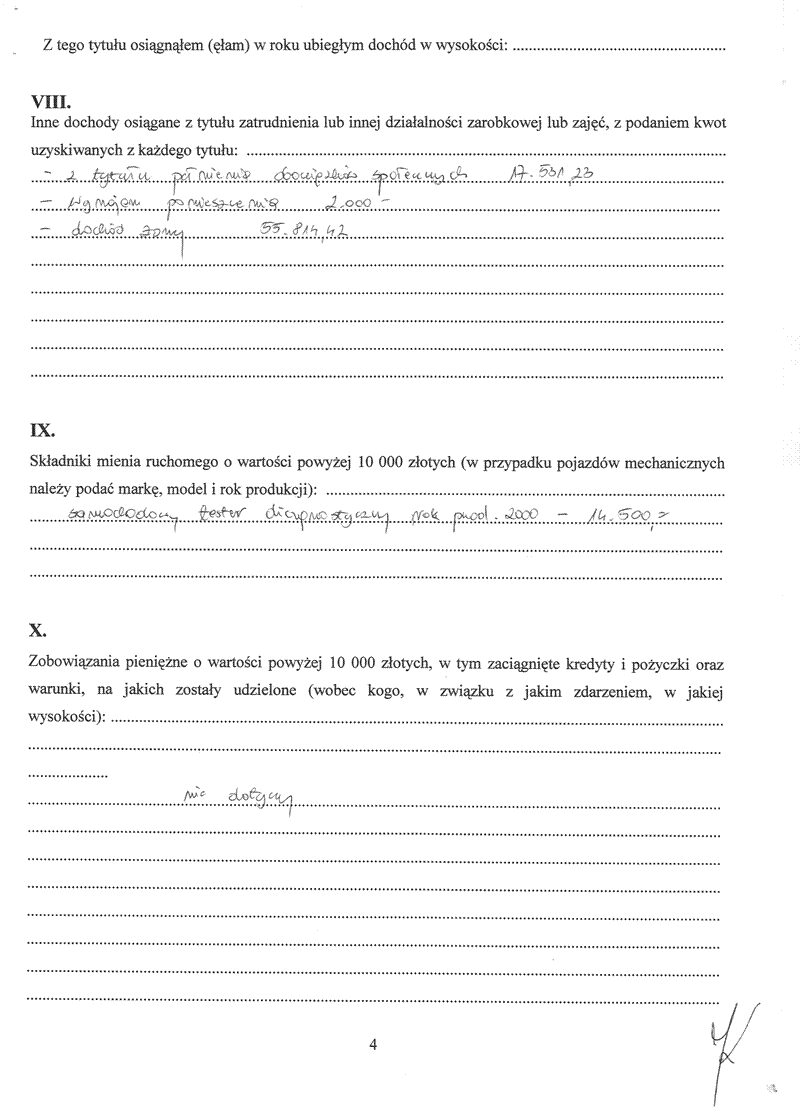 Z tego tytułu osiągnąłem (ęłam) w roku ubiegłym dochód w wysokości: ........................................................
VIII.
Inne dochody osiągane z tytułu zatrudnienia lub innej działalności zarobkowej lub zajęć, z podaniem kwot
uzyskiwanych z każdego tytułu: ........................................................
- z tytułu pełnienia obowiązków społecznych 17.531,23
- wynajem pomieszczenia 2.000 -
- dochód żony 55.814,42
IX.
Składniki mienia ruchomego o wartości powyżej 10 000 złotych (w przypadku pojazdów mechanicznych
należy podać markę, model i rok produkcji): ........................................................
samochodowy tester diagnostyczny rok prod. 2000 - 14.500,=
X.
Zobowiązania pieniężne o wartości powyżej 10 000 złotych, w tym zaciągnięte kredyty i pożyczki oraz
warunki, na jakich zostały udzielone (wobec kogo, w związku z jakim zdarzeniem, w jakiej
wysokości): ........................................................
nie dotyczy
4